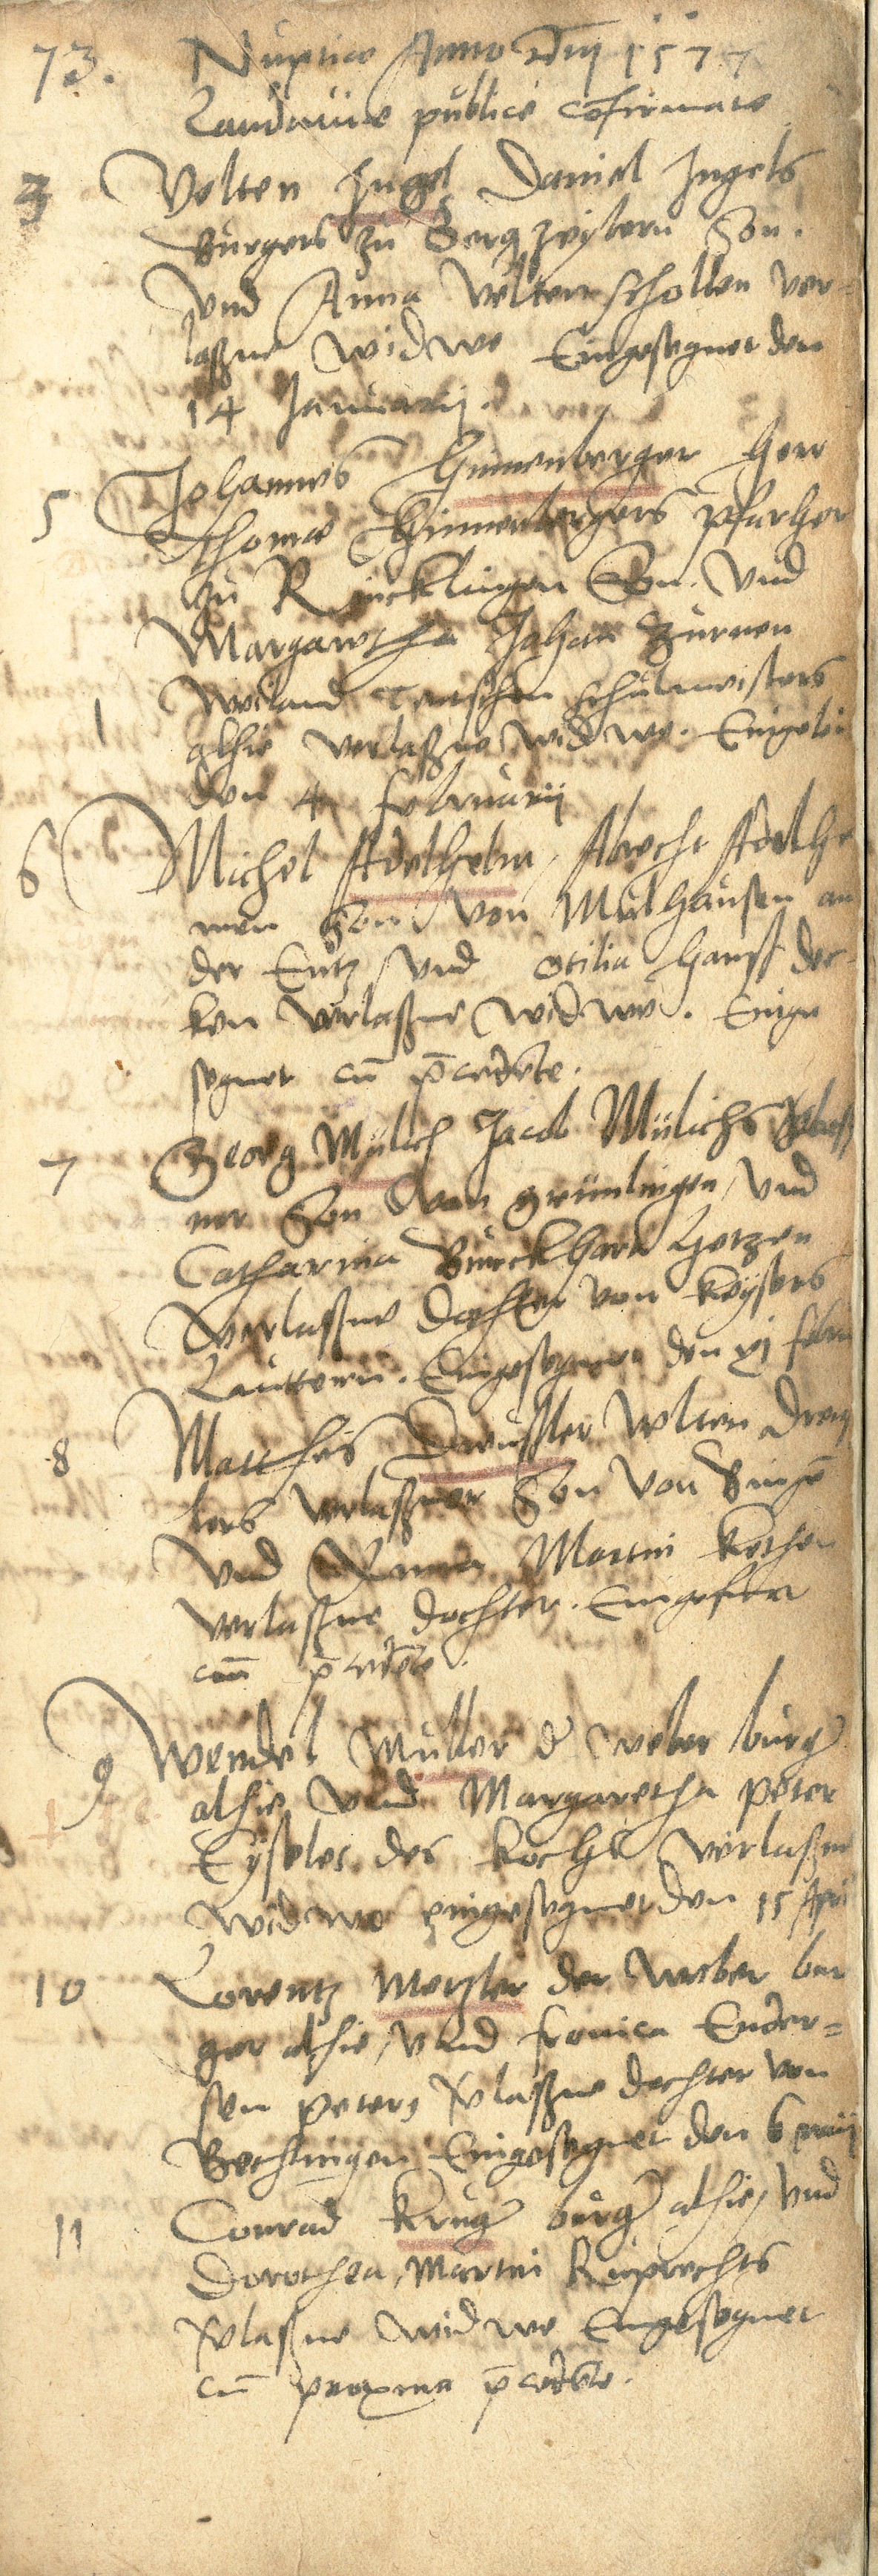 73. Nuptiæ Anno dnj 1577
Landauiæ publicè cōfirmatæ
3 Velten Ingel Daniel Ingels
Burgers zu Bergzeybern Son.
vnd Anna Velten schollen ver-
laßne widwe Eingesegnet den
14 Januarij.
5 Johannes Hinnenberger Herr
Thomæ Hinnenbergers pfarher
zu Rücklingen Son. Vnd
Margaretha Johan Zürnen
1 weiland Teutschen schulmeisters
alhie verlaßne widwe. Eingelei
den 4 februarij
6 Michel Adelhelm, Albrecht Adelhe
men Son von Mülhausen an
der Entz, vnd Otilia Hanß Dec-
ken verlaßne widwe. Einge
segnet cū p̄cedēte.
7 Georg Mülich Jacob Mülichs
ner Son von grünlingen, vnd
Catharina Burckhard Hetzen
verlaßne dochter von Keysers
Lauttern. Eingesegnet den xj febru
8 Matthis Dreußler Velten Dreuß
lers verlaßner Son von Bingē
vnd Anna Martin Kethen
verlaßne dochter. Eingefürt
cum p̄cedēte.
9 Wendel Müller d weber burg
alhie vnd Margaretha Peter
Eyseles des Kochs verlaßne
widwe eingesegnet den 15 Apri
10 Lorentz Metzler der weber bur
ger alhie, vnd fronica Ender-
sen peters Vlaßne dochter von
Bechingen Eingesegnet den 6 maij
11 Conrad Krug burg alhie, vnd
Dorothea, Martin Ruprechts
Vlaßne widwe Eingesegnet
cū proxima p̄cedēte.